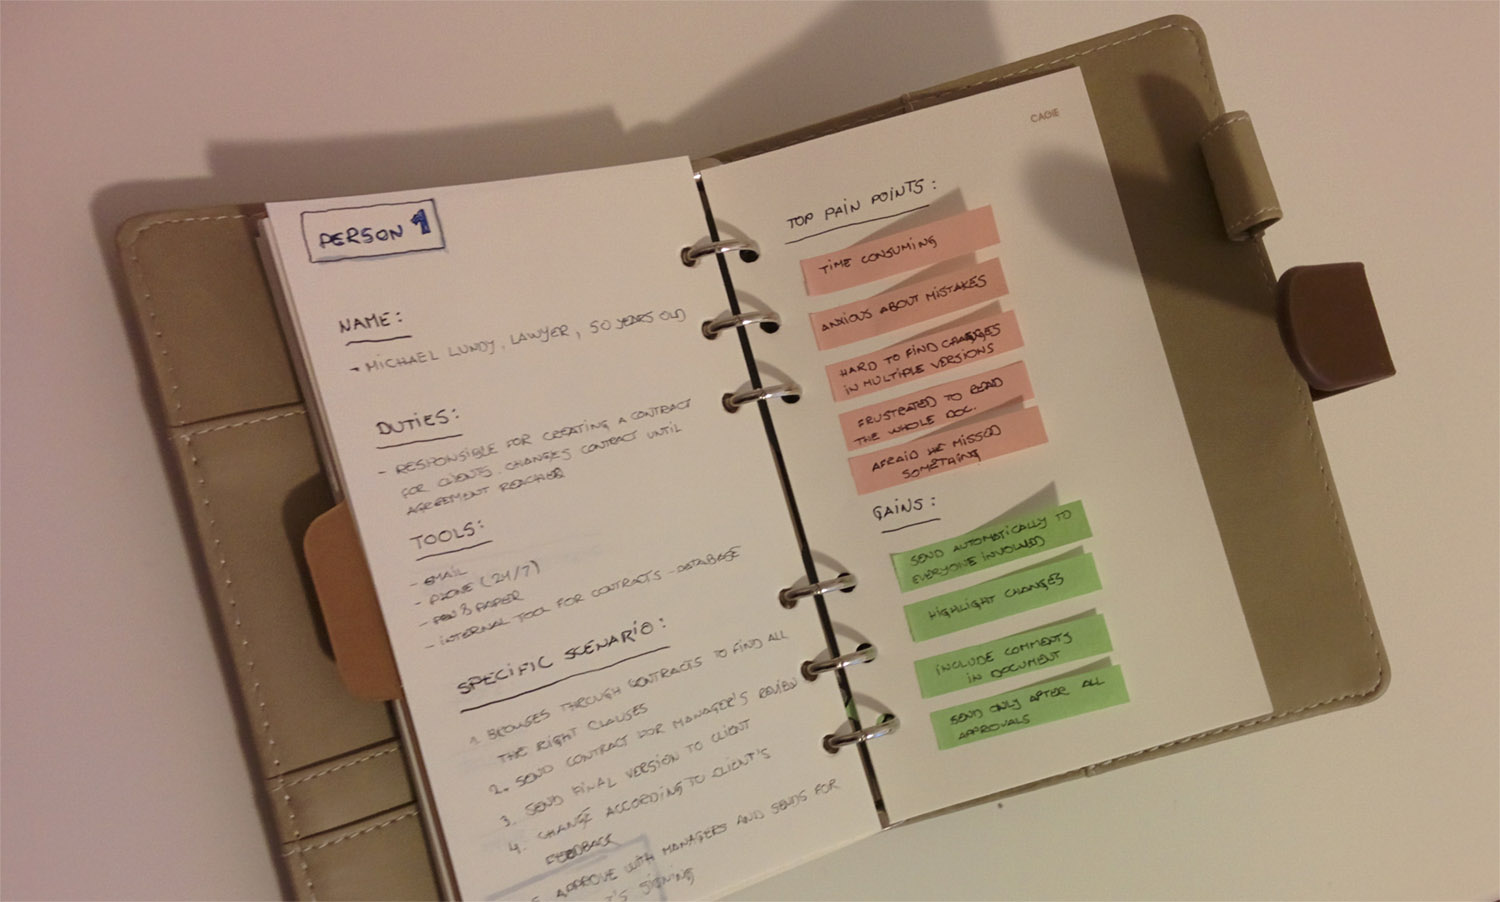 PERSON 1
NAME:
- MICHAEL LUNDY, LAWYER, 50 YEARS OLD
DUTIES:
- RESPONSIBLE FOR CREATING A CONTRACT
FOR CLIENTS. CHANGES CONTRACT UNTIL
AGREEMENT REACHED
TOOLS:
- EMAIL
- PHONE (24/7)
- PEN & PAPER
- INTERNAL TOOL FOR CONTRACTS - DATABASE
SPECIFIC SCENARIO:
1. BROWSES THROUGH CONTRACTS TO FIND ALL
THE RIGHT CLAUSES
2. SEND CONTRACT FOR MANAGER'S REVIEW
3. SEND FINAL VERSION TO CLIENT
4. CHANGE ACCORDING TO CLIENT'S
FEEDBACK
APPROVE WITH MANAGERS AND SENDS FOR
SIGNING
CAGIE
TOP PAIN POINTS:
TIME CONSUMING
ANXIOUS ABOUT MISTAKES
HARD TO FIND CHANGES
IN MULTIPLE VERSIONS
FRUSTRATED TO READ
THE WHOLE DOC.
AFRAID HE MISSED
SOMETHING
GAINS:
SEND AUTOMATICALLY TO
EVERYONE INVOLVED
HIGHLIGHT CHANGES
INCLUDE COMMENTS
IN DOCUMENT
SEND ONLY AFTER ALL
APPROVALS